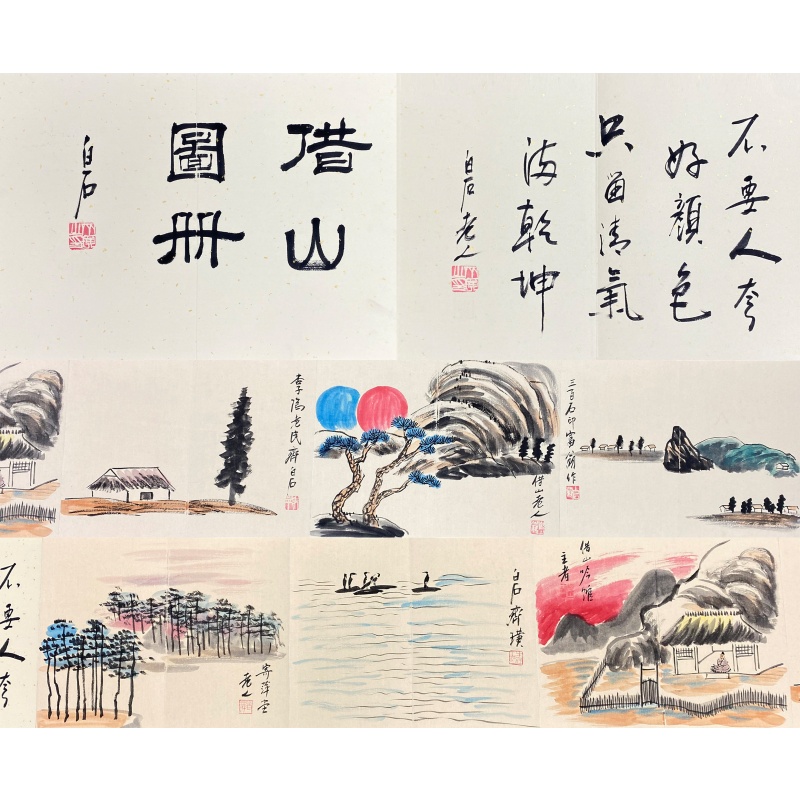 借山
圖冊
白石
不要人夸
好顏色
只留清氣
滿乾坤
白石老人
杏子隖老民齊白石
借山老人
三百石印富翁作
不要人夸
寄萍堂
老人
白石齊璜
借山吟館
主者